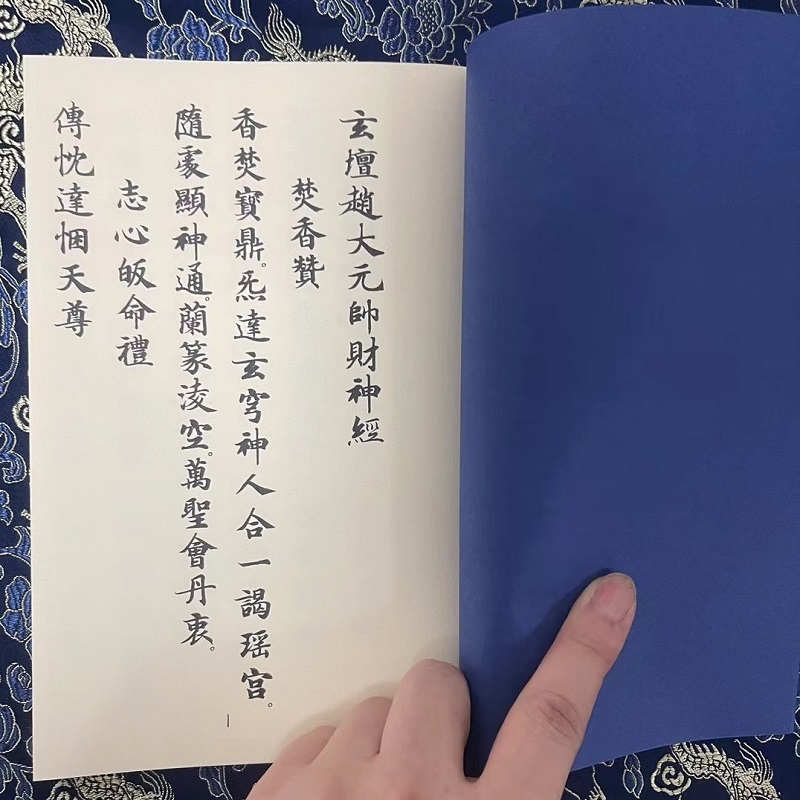 玄壇趙大元帥財神經
焚香贊
香焚寶鼎。炁達玄穹神人合一謁瑶宫。
隨處顯神通。蘭篆淩空。萬聖會丹衷。
志心皈命禮
傳忱達悃天尊
一